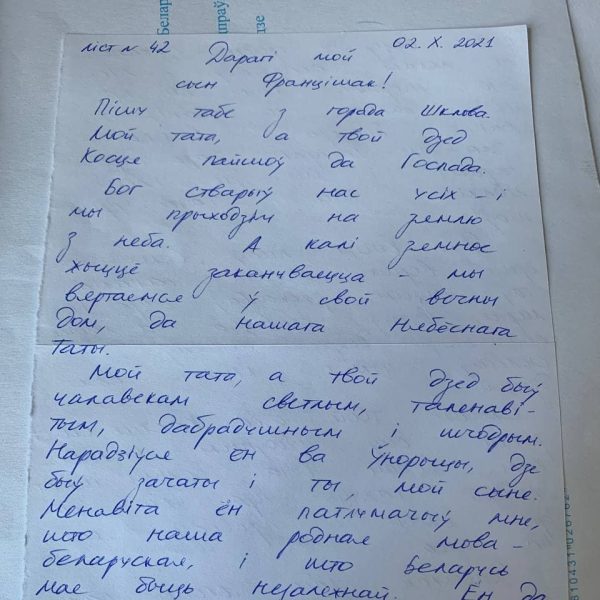 Белар
шраў
дзе
ліст n 42
02. X. 2021
Дарагі мой
сын Францішак!
Пішу табе з горада Шклова.
Мой тата, а твой дзед
Косця пайшоў да Госпада.
Бог стварыў нас усіх - і
мы прыходзім на зямлю
з неба. А калі зямное
жыццё заканчваецца - мы
вяртаемся ў свой вечны
дом, да нашага Нябёснага
Таты.
Мой тата, а твой дзед быў
чалавекам светлым, таленаві-
тым, дабрадушным і шчодрым.
Нарадзіўся ён ва Ўнорыцы, дзе
быў зачаты і ты, мой сыне.
Менавіта ён патлумачыў мне,
што наша родная мова -
беларуская, і што Беларусь
мае быць незалежнай. Ён да